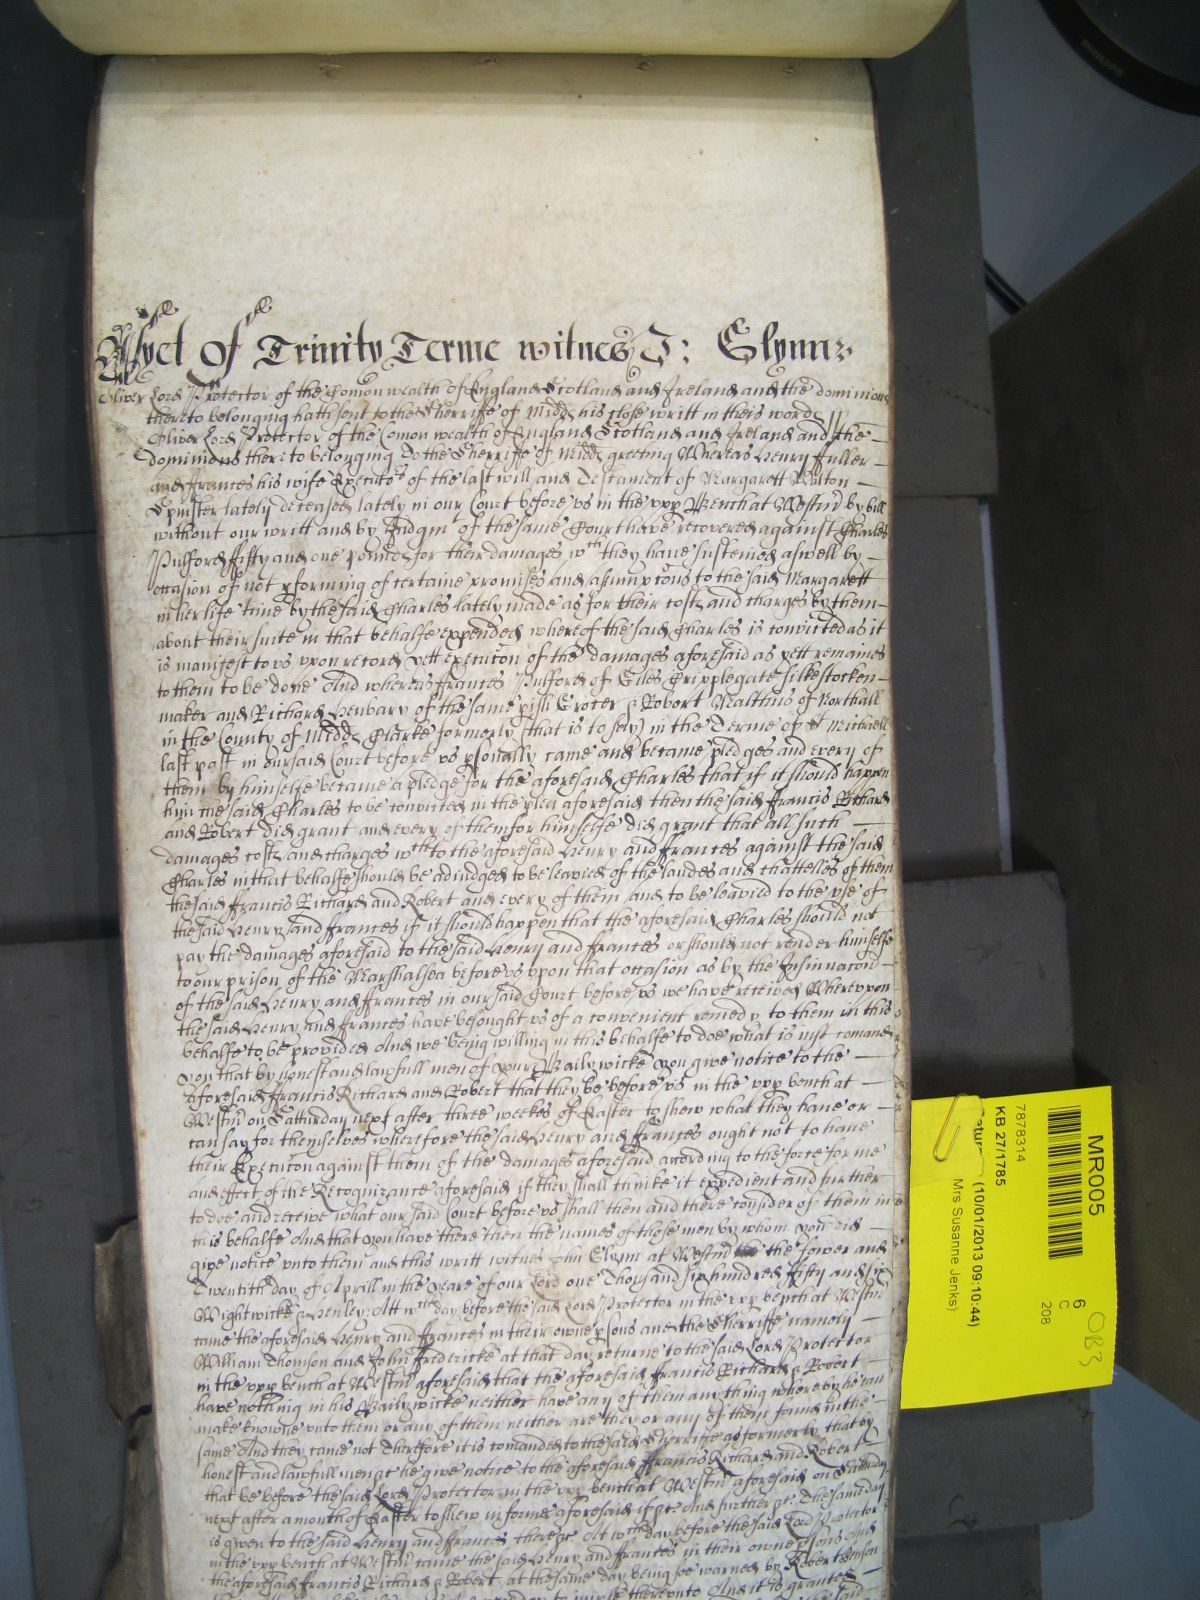 As yet of Trinity Terme witnes J: Glynn
Oliver Lord Protector of the Comon wealth of England Scotland and Ireland and the dominions
thereto belonging hath sent to the Sherriffe of Midd his close writt in theis words
Oliver Lord Protector of the Comon wealth of England Scotland and Ireland and the
dominions thereto belonging To the Sherriffe of Midd greeting Whereas Henry Fuller
and Frances his wife Executor of the last will and Testament of Margarett
Spinster lately deceased lately in our Court before us in the upp Bench at Westm by bill
without our writt and by Judgmt of the same Court have recovered against Charles
Pulford fifty and one pounds for their damages wch they have susteined aswell by
occasion of not pforming of certaine promises and assumpcons to the said Margarett
in her life time by the said Charles lately made as for their costs and charges by them
about their suite in that behalfe expended whereof the said Charles is convicted as it
is manifest to us upon record yett execucon of the damages aforesaid as yett remaines
to them to be done And whereas Frances Pulford of Giles Cripplegate silkestocken
maker and Richard Henbary of the same pish Grocer & Robert Malthus of Northall
in the County of Midd Clarke formerly (that is to sey) in the Terme of St Michaell
last past in our said Court before us psonally came and became pledges and every of
them by himselfe became a pledge for the aforesaid Charles that if it should happen
him the said Charles to be convicted in the plea aforesaid then the said Francis Richard
and Robert did grant and every of them for himselfe did grant that all such
damages costs and charges wch to the aforesaid Henry and Frances against the said
Charles in that behalfe should be adiudged to be leavied of the landes and chattelles of them
the said Francis Richard and Robert and every of them and to be leavied to the use of
the said Henry and Frances if it should happen that the aforesaid Charles should not
pay the damages aforesaid to the said Henry and Frances or should not render himselfe
to our prison of the Marshalsea before us upon that occasion as by the Insinuacon
of the said Henry and Frances in our said Court before us we have received Whereupon
the said Henry and Frances have besought us of a convenient remedy to them in this
behalfe to be provided And we being willing in this behalfe to doe what is iust comand
you that by honest and lawfull men of your Bailywicke you give notice to the
aforesaid Francis Richard and Robert that they be before us in the upp bench at
Westm on Satturday next after three weekes of Easter to shew what they have or
can say for themselves wherefore the said Henry and Frances ought not to have
their Execucon against them of the damages aforesaid according to the force forme
and effect of the Recognizance aforesaid if they shall thinke it expedient and further
to doe and receive what our said Court before us shall then and there consider of them in
this behalfe And that you have there then the names of those men by whom you did
give notice unto them and this writt witnes John Glynn at Westm the fower and
Twentith day of Aprill in the yeare of our Lord one Thousand six hundred fifty and six
Wightwicke & Henley. Att wch day before the said Lord Protector in the upp bench at Westm
came the aforesaid Henry and Frances in their owne psons and the Sherriffe namely
William Thomson and John Fredericke at that day returne to the said Lord Protector
in the upp bench at Westm aforesaid that the aforesaid Francis Richard & Robert
have nothing in his Bailywicke neither have any of them any thing whereby he can
make knowne unto them or any of them neither are they or any of them found in the
same And they came not Therefore it is comanded to the said Sherriffe as formerly that by
honest and lawfull men &c he give notice to the aforesaid Francis Richard and Robert
that be before the said Lord Protector in the upp bench at Westm aforesaid on Satturday
next after a month of Easter to shew in forme aforesaid if &c And further &c The same day
is given to the said Henry and Frances there &c At wch day before the said Lord Protector
in the upp bench at Westm came the said Henry and Frances in their owne psons And
the aforesaid Francis Richard & Robert at the same day being soe warned by Robert Benson
thereunto And it is granted
PHILIPS
MR005
7878314
KB 27/1785
(10/01/2013 09:10:44)
Mrs Susanne Jenks)
6
C
208
OB3